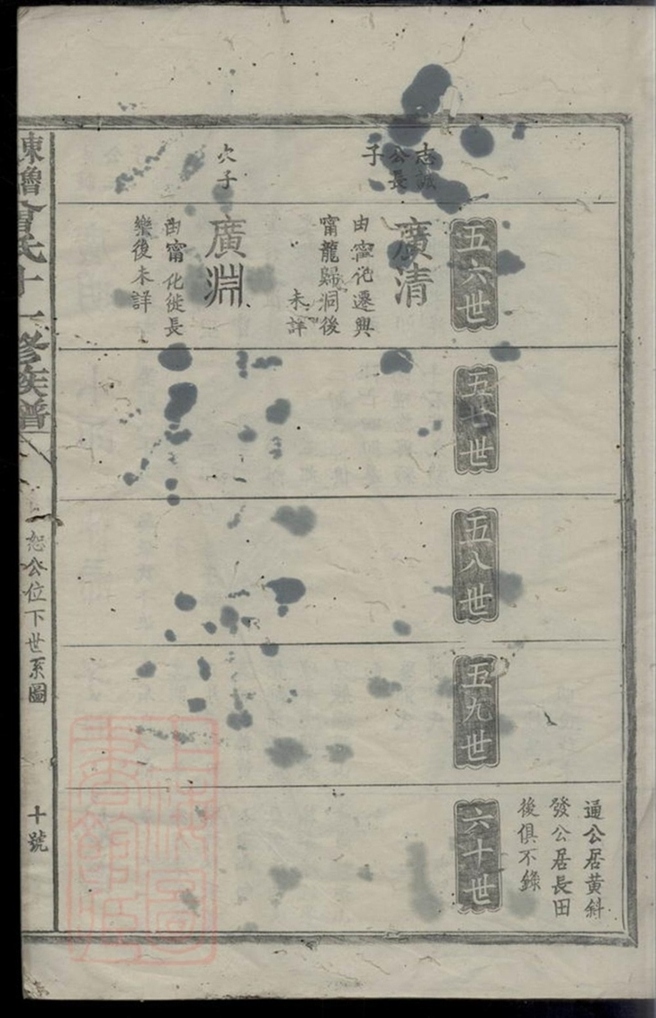 通公居黃斜
發公居長田
後俱不錄
五六世
五七世
五八世
五九世
六十世
公長
子
廣清
由寧化遷興
甯龍歸洞後
未詳
次子
廣淵
由甯化徙長
樂後未詳
氏十一修族譜
恕公位下世系圖
十號